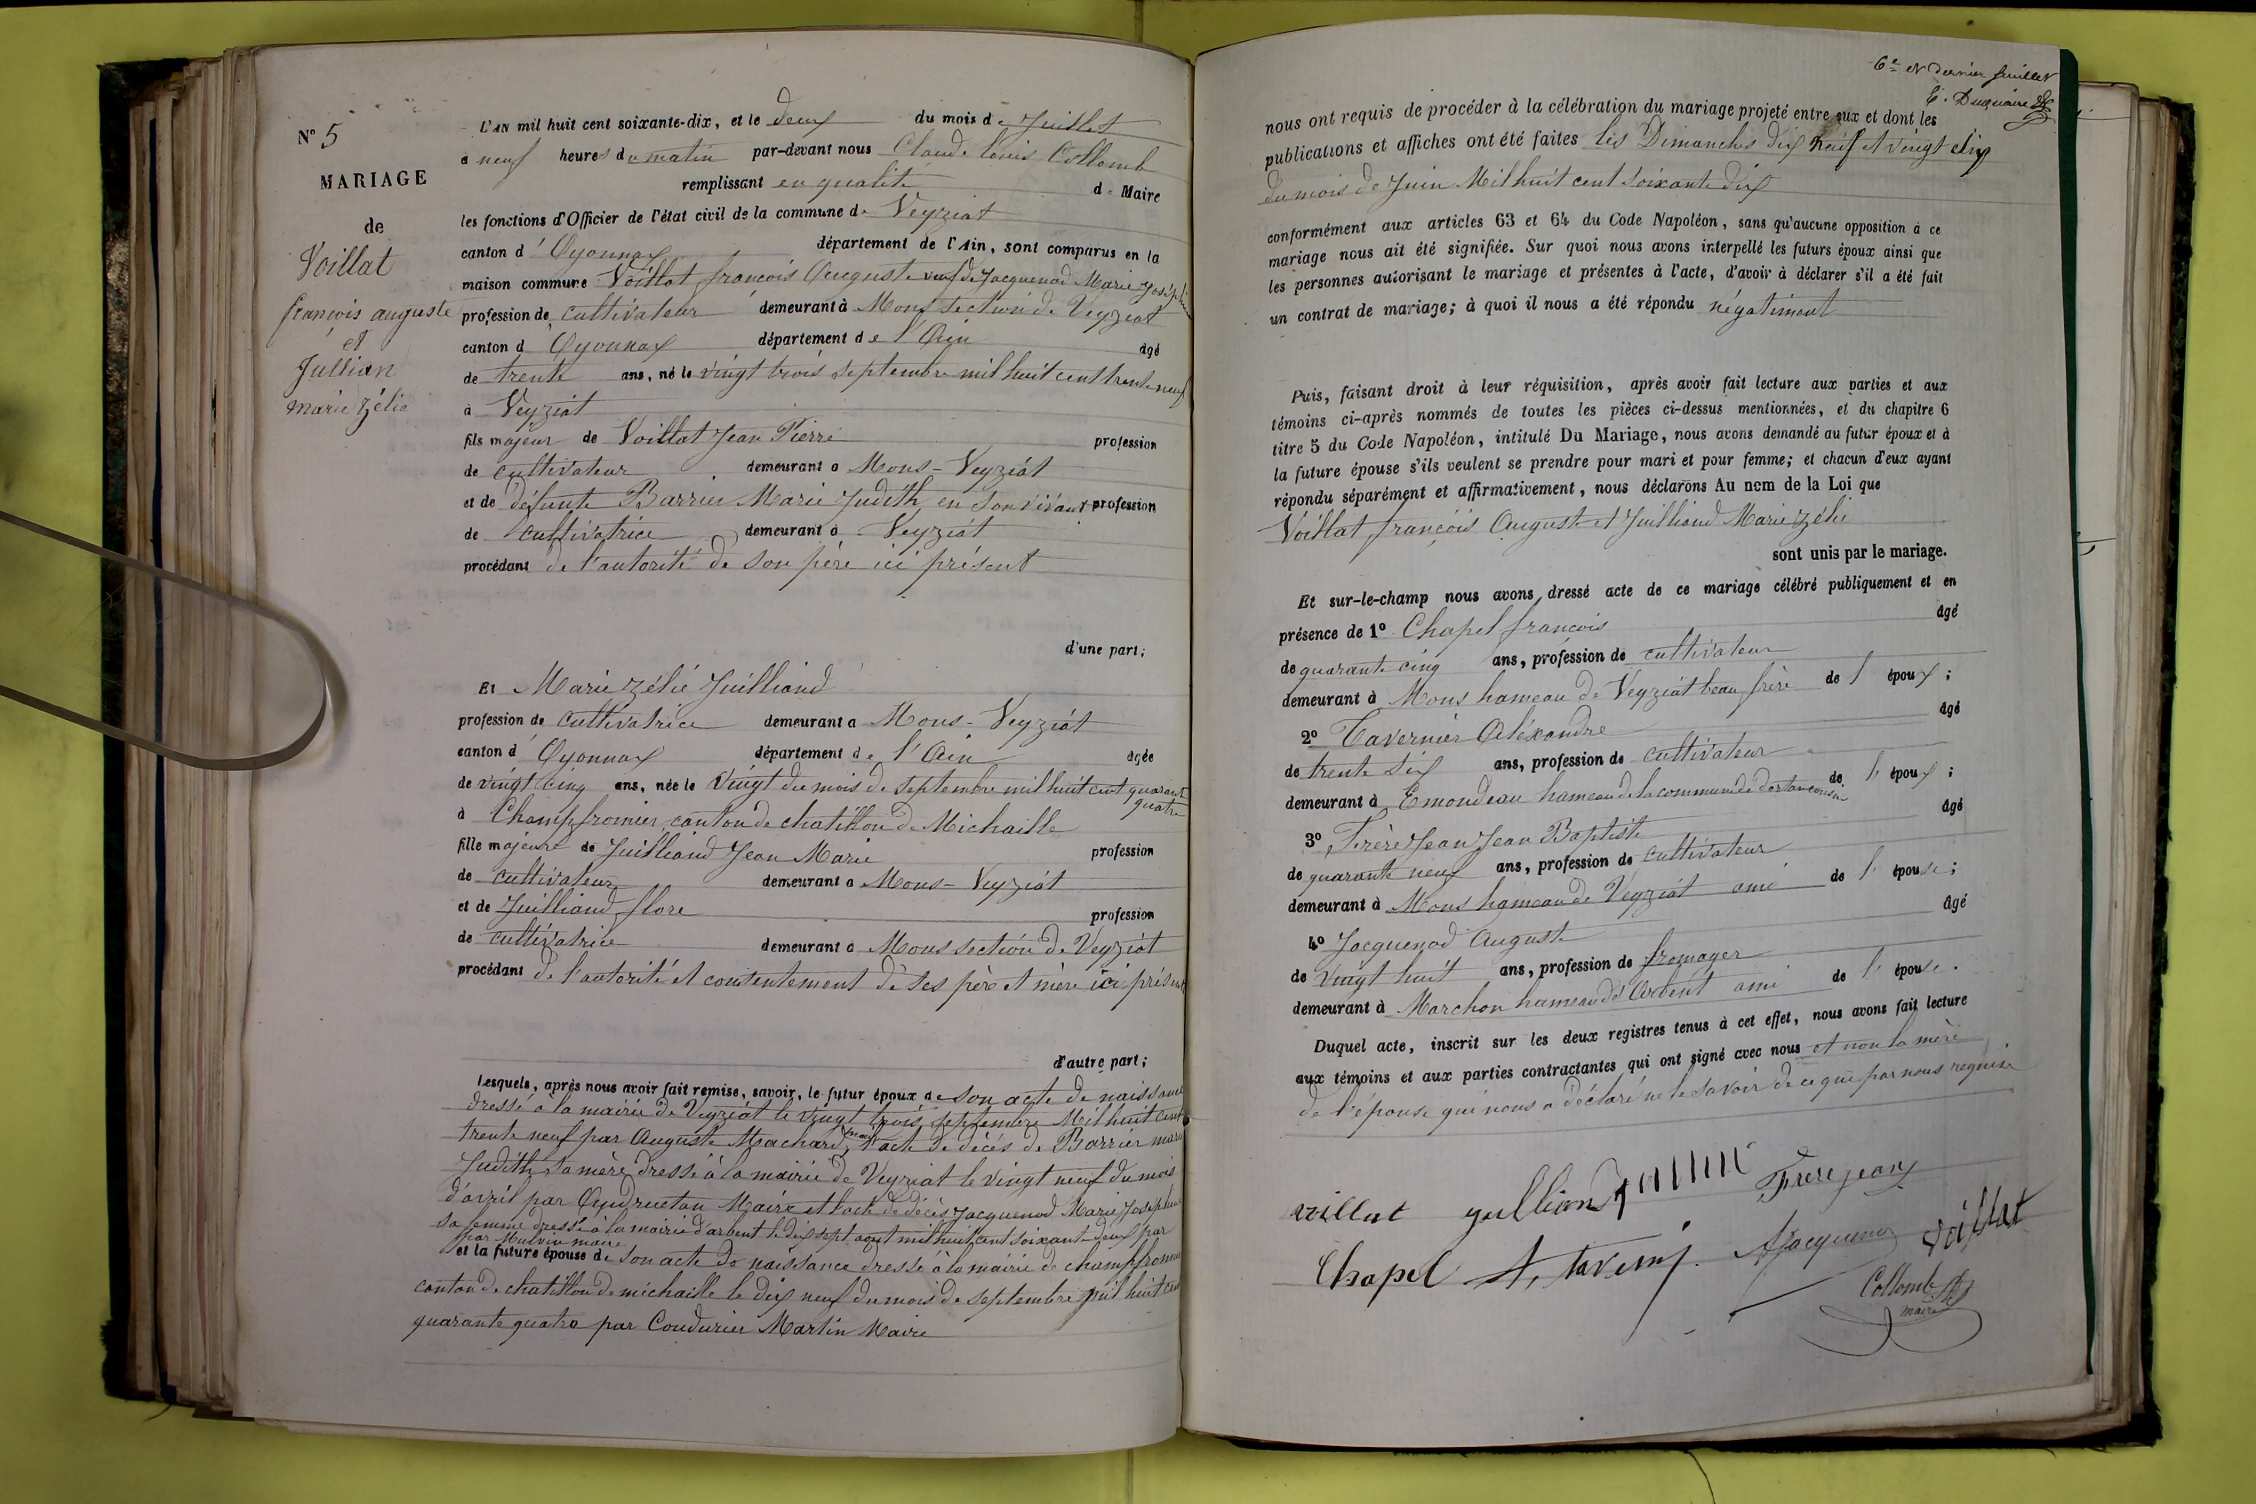 N° 5
MARIAGE
de
Voillat
françois auguste
et
Jullian
marie zélie
L'AN mil huit cent soixante-dix, et le deux du mois de Juillet
a neuf heures du matin par-devant nous Claude Louis Collomb
remplissant en qualité de Maire
les fonctions d'Officier de l'état civil de la commune de Veyziat
canton d'Oyonnax département de l'Ain, sont comparus en la
maison commune Voillat françois Auguste veuf de Jacquenod Marie Joséphine
profession de cultivateur demeurant à Mons section de Veyziat
canton d Oyonnax département de l'Ain âgé
de trente ans, né le vingt trois septembre mil huit cent trente neuf
à Veyziat
fils majeur de Voillat Jean Pierre profession
de cultivateur demeurant a Mons-Veyziat
et de défunte Barrier Marie Judith en son vivant profession
de cultivatrice demeurant à Veyziat
procédant de l'autorité de son père ici présent
d'une part;
Et Marie Zélie Juilliand
profession de cultivatrice demeurant a Mons-Veyziat
canton d'Oyonnax département de l'Ain âgée
de vingt cinq ans, née le vingt du mois de septembre mil huit cent quarante
quatre
à Champfromier canton de chatillon de Michaille
fille majeure de Juilliand Jean Marie profession
de cultivateur demeurant a Mons-Veyziat
et de Juilliand flore profession
de cultivatrice demeurant a Mons section de Veyziat
procédant de l'autorité et consentement de ses père et mère ici présents
d'autre part;
Lesquels, après nous avoir fait remise, savoir, le futur époux de son acte de naissance
dressé à la mairie de Veyziat le vingt trois septembre Mil huit cent
trente neuf par Auguste Machard maire l'acte de décès de Barrier marie
Judith sa mère dressé à la mairie de Veyziat le vingt neuf du mois
d'avril par Maire et l'acte de décès Jacquenod Marie Josephine
sa femme dressé à la mairie d'arbent le dix sept aout mil huit cent soixante deux par
par maire
et la future épouse de son acte de naissance dressé à la mairie de champfromier
canton de chatillon de michaille le dix neuf du mois de septembre mil huit cent
quarante quatre par Coudurier Martin Maire
6e et dernier feuillet
nous ont requis de procéder à la célébration du mariage projeté entre eux et dont les
publications et affiches ont été faites les Dimanches dix neuf et vingt six
du mois de Juin Mil huit cent soixante dix
conformément aux articles 63 et 64 du Code Napoléon, sans qu'aucune opposition à ce
mariage nous ait été signifiée. Sur quoi nous avons interpellé les futurs époux ainsi que
les personnes autorisant le mariage et présentes à l'acte, d'avoir à déclarer s'il a été fait
un contrat de mariage; à quoi il nous a été répondu négativement
Puis, faisant droit à leur réquisition, après avoir fait lecture aux parties et aux
témoins ci-après nommés de toutes les pièces ci-dessus mentionnées, et du chapitre 6
titre 5 du Code Napoléon, intitulé Du Mariage, nous avons demandé au futur époux et à
la future épouse s'ils veulent se prendre pour mari et pour femme; et chacun d'eux ayant
répondu séparément et affirmativement, nous déclarons Au nom de la Loi que
Voillat françois Auguste et Juilliand Marie Zélie
sont unis par le mariage.
Et sur-le-champ nous avons dressé acte de ce mariage célébré publiquement et en
présence de 1° Chapel francois âgé
de quarante cinq ans, profession de cultivateur
demeurant à Mons hameau de Veyziat beau frère de l'époux;
2° Tavernier Aléxandre âgé
de trente six ans, profession de cultivateur
demeurant à Emondeau hameau de la commune de dortan cousin de l'époux;
3° Frère Jean Jean Baptiste âgé
de quarante neuf ans, profession de cultivateur
demeurant à Mons hameau de Veyziat ami de l'épouse;
4° Jacquenod Auguste âgé
de vingt huit ans, profession de fromager
demeurant à Marchon hameau d'Arbent ami de l'épouse.
Duquel acte, inscrit sur les deux registres tenus à cet effet, nous avons fait lecture
aux témoins et aux parties contractantes qui ont signé avec nous et non la mère
de l'épouse qui nous a déclaré ne le savoir de ce que par nous requise
voillat jullian Frerejean
Chapel A, tavernier Ajacquenod voillat
Collomb
maire